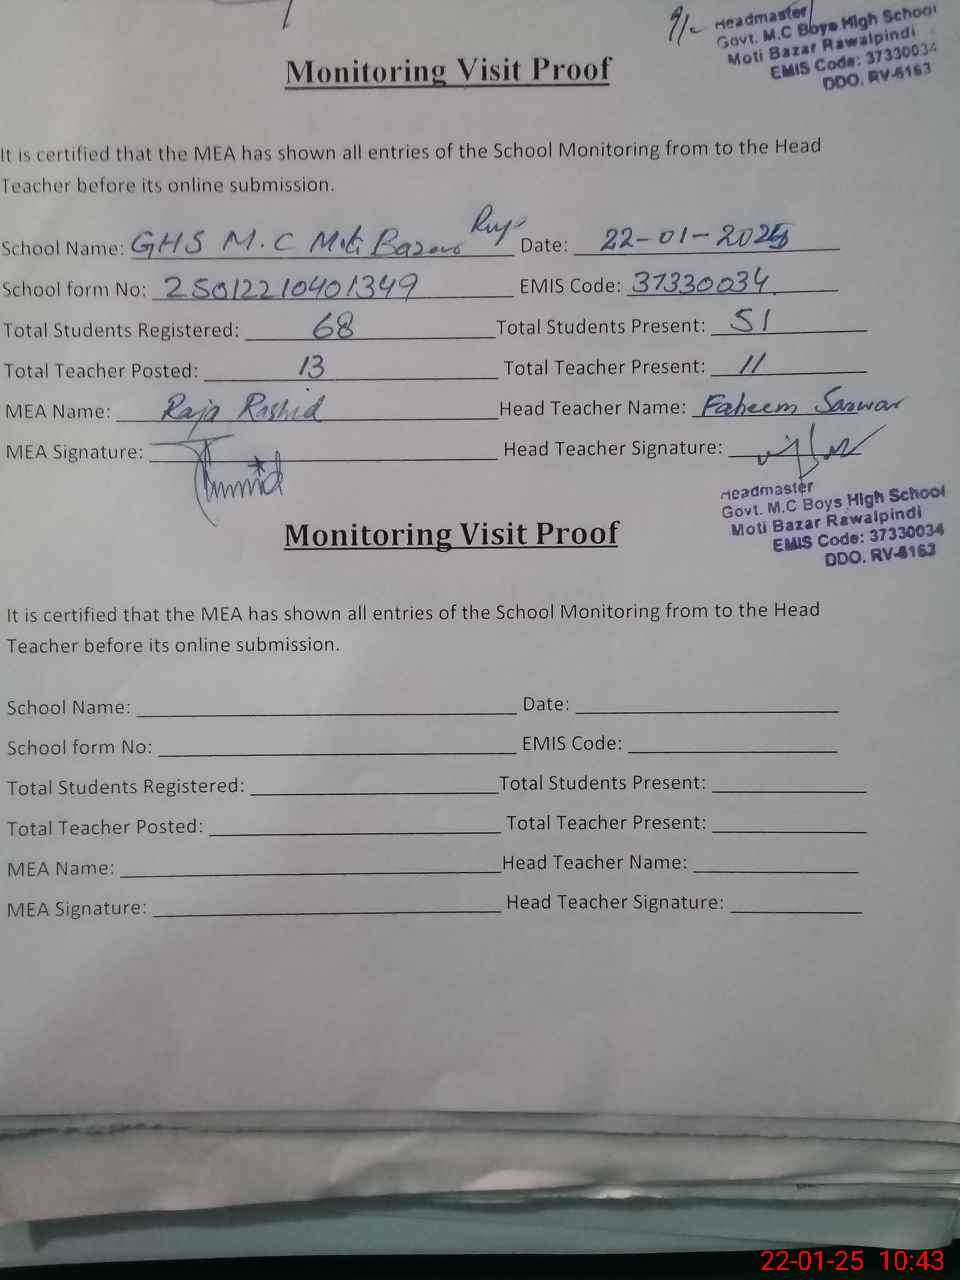 Headmaster
Govt. M.C Boys High School
Moti Bazar Rawalpindi
EMIS Code: 37330034
DDO. RV-6163
Monitoring Visit Proof
It is certified that the MEA has shown all entries of the School Monitoring from to the Head
Teacher before its online submission.
School Name: GHS M.C Moti Bazar Rwp Date: 22-01-2025
School form No: 25012210401349 EMIS Code: 37330034
Total Students Registered: 68 Total Students Present: 51
Total Teacher Posted: 13 Total Teacher Present: 11
MEA Name: Raja Rashid Head Teacher Name: Faheem Sarwar
MEA Signature: Head Teacher Signature:
Headmaster
Govt. M.C Boys High School
Moti Bazar Rawalpindi
EMIS Code: 37330034
DDO. RV-6163
Monitoring Visit Proof
It is certified that the MEA has shown all entries of the School Monitoring from to the Head
Teacher before its online submission.
School Name: Date:
School form No: EMIS Code:
Total Students Registered: Total Students Present:
Total Teacher Posted: Total Teacher Present:
MEA Name: Head Teacher Name:
MEA Signature: Head Teacher Signature:
22-01-25 10:43